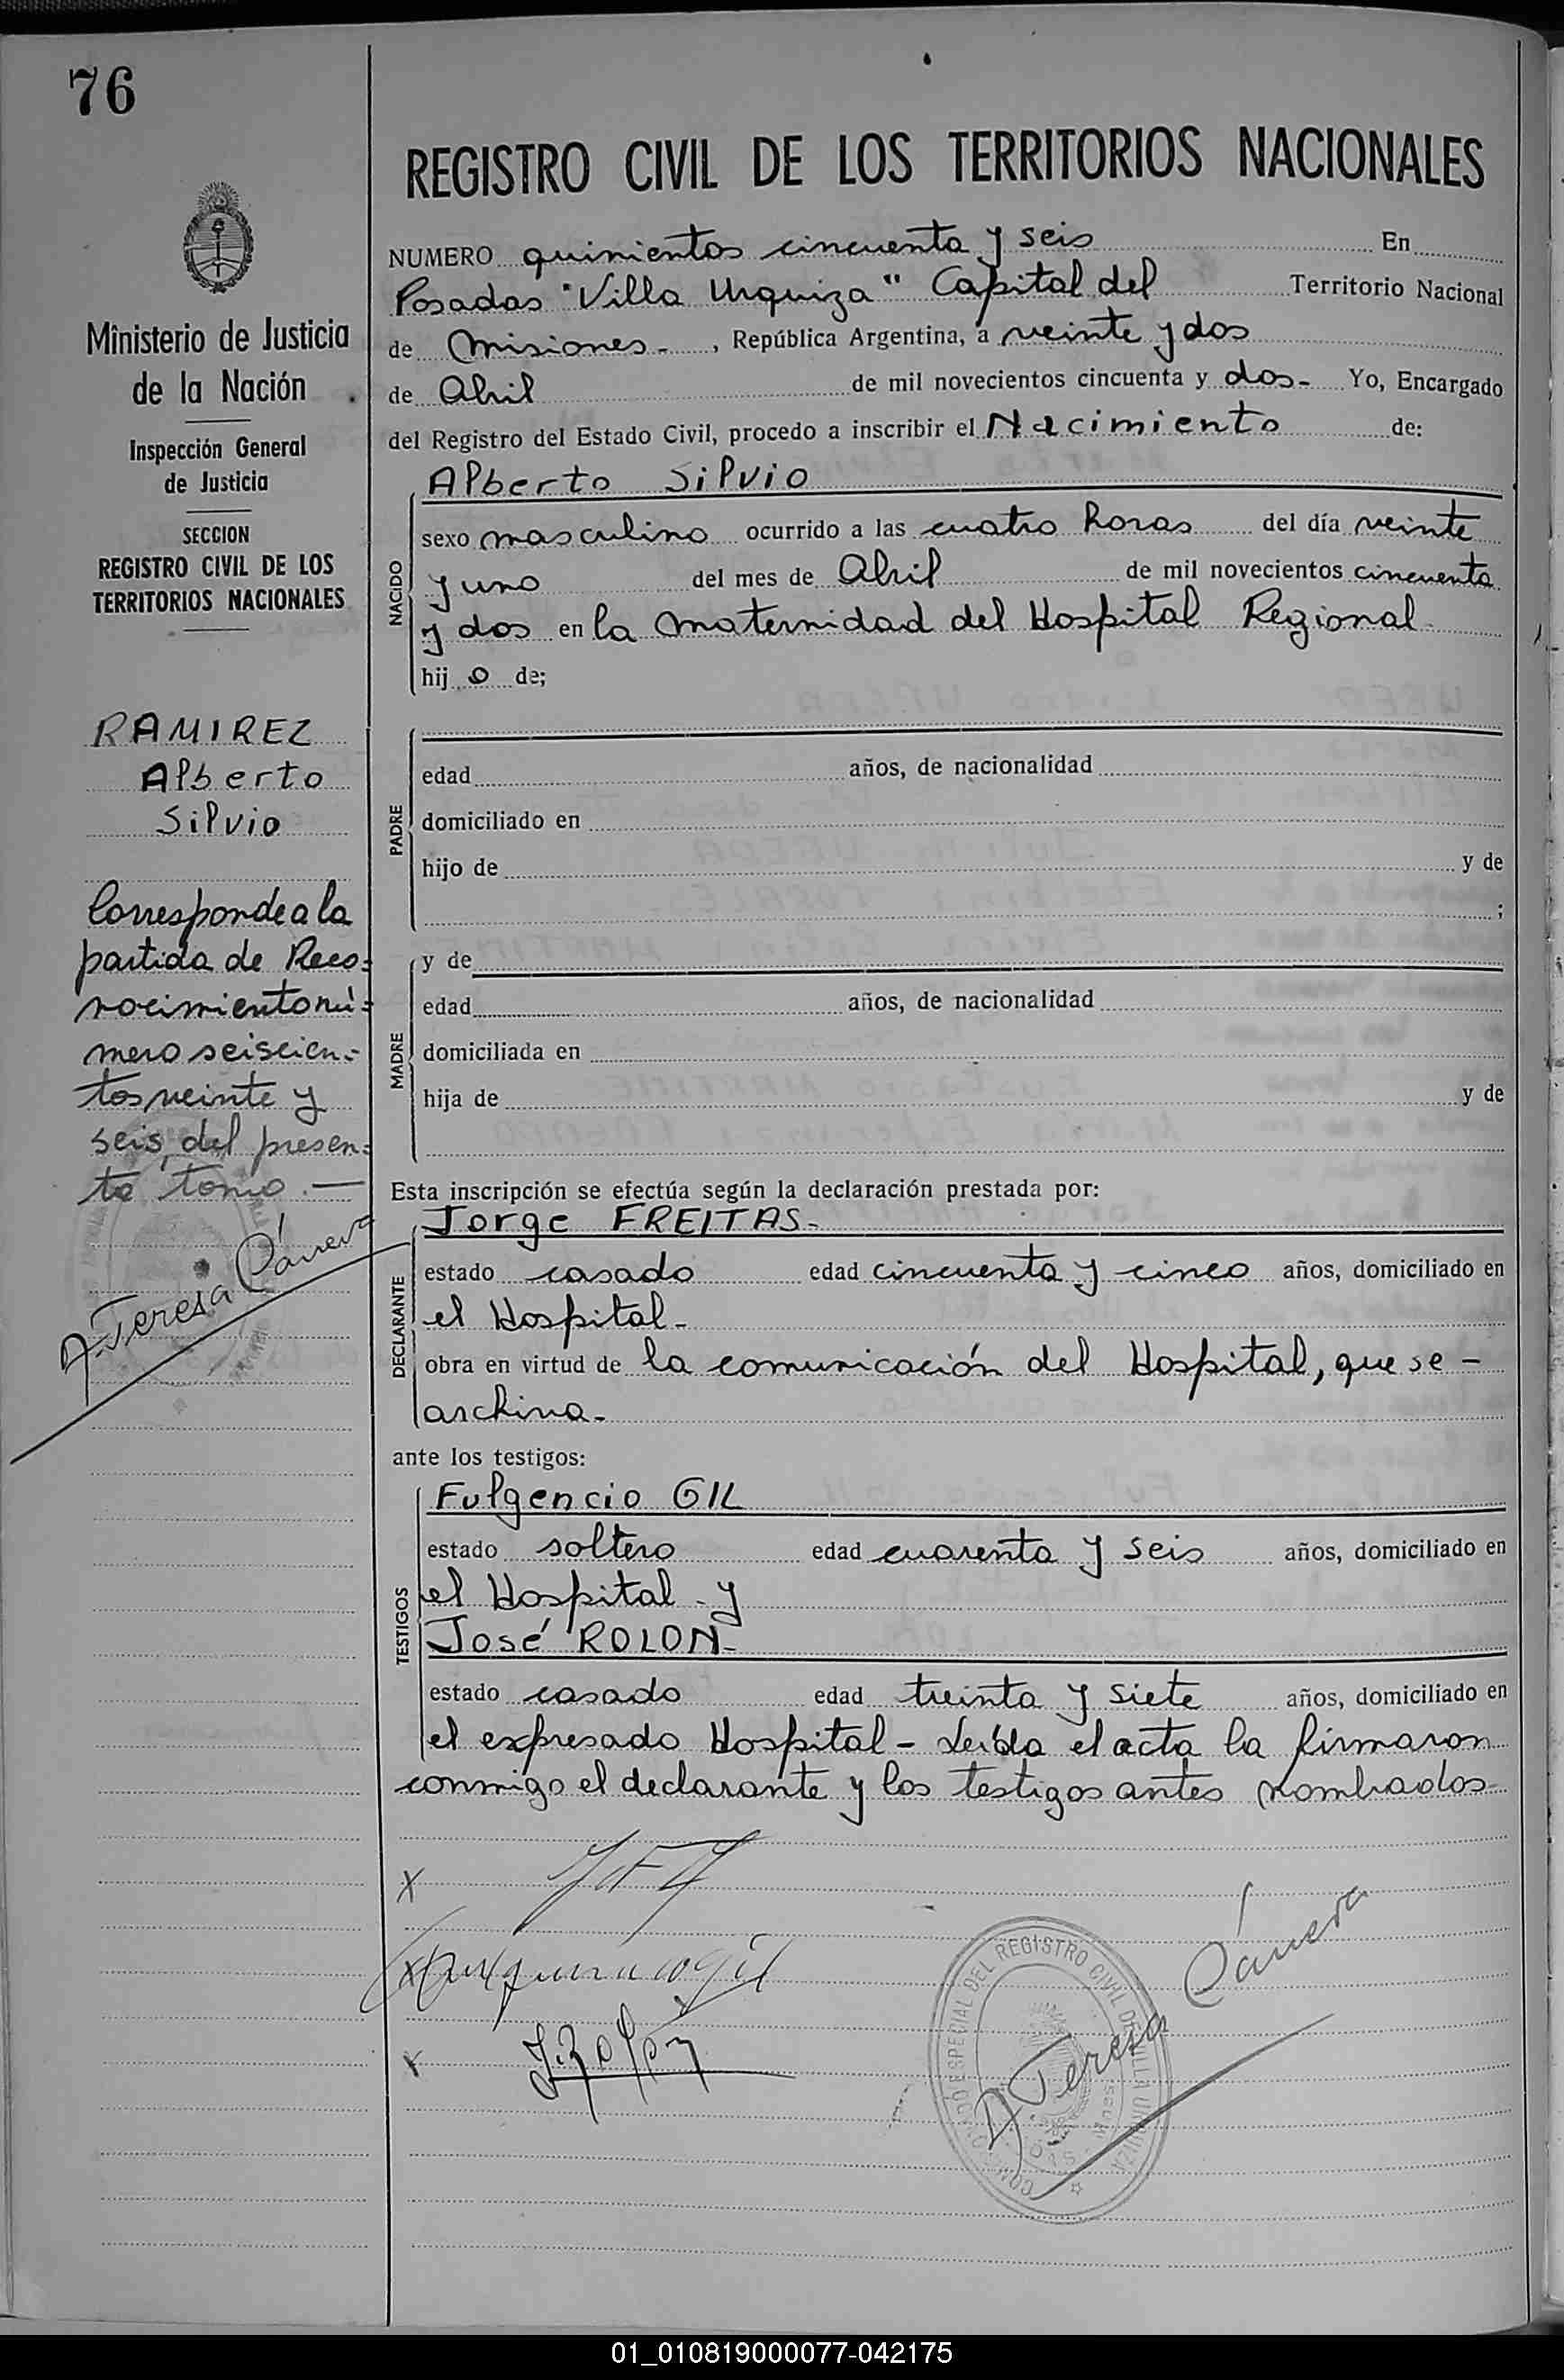 76
REGISTRO CIVIL DE LOS TERRITORIOS NACIONALES
Ministerio de Justicia
de la Nación
Inspección General
de Justicia
SECCION
REGISTRO CIVIL DE LOS
TERRITORIOS NACIONALES
RAMIREZ
Alberto
Silvio
Corresponde a la
partida de Reco=
nocimiento nú=
mero seiscien=
tos veinte y
seis, del presen=
te tomo.—
A. Teresa Cánera
NUMERO quinientos cincuenta y seis En
Posadas "Villa Urquiza" Capital del Territorio Nacional
de Misiones-, República Argentina, a veinte y dos
de Abril de mil novecientos cincuenta y dos- Yo, Encargado
del Registro del Estado Civil, procedo a inscribir el Nacimiento de:
NACIDO
Alberto Silvio
sexo masculino ocurrido a las cuatro horas del día veinte
y uno del mes de Abril de mil novecientos cincuenta
y dos en la Maternidad del Hospital Regional
hij o de;
PADRE
edad años, de nacionalidad
domiciliado en
hijo de y de
;
MADRE
y de
edad años, de nacionalidad
domiciliada en
hija de y de
Esta inscripción se efectúa según la declaración prestada por:
DECLARANTE
Jorge FREITAS-
estado casado edad cincuenta y cinco años, domiciliado en
el Hospital-
obra en virtud de la comunicación del Hospital, que se -
archiva-
ante los testigos:
TESTIGOS
Fulgencio GIL
estado soltero edad cuarenta y seis años, domiciliado en
el Hospital - y
José ROLON-
estado casado edad treinta y siete años, domiciliado en
el expresado Hospital - Leída el acta la firmaron
conmigo el declarante y los testigos antes nombrados-
X
X
X J. Rolón
REGISTRO CIVIL DE VILLA URQUIZA
A. Teresa Cánera
01_010819000077-042175